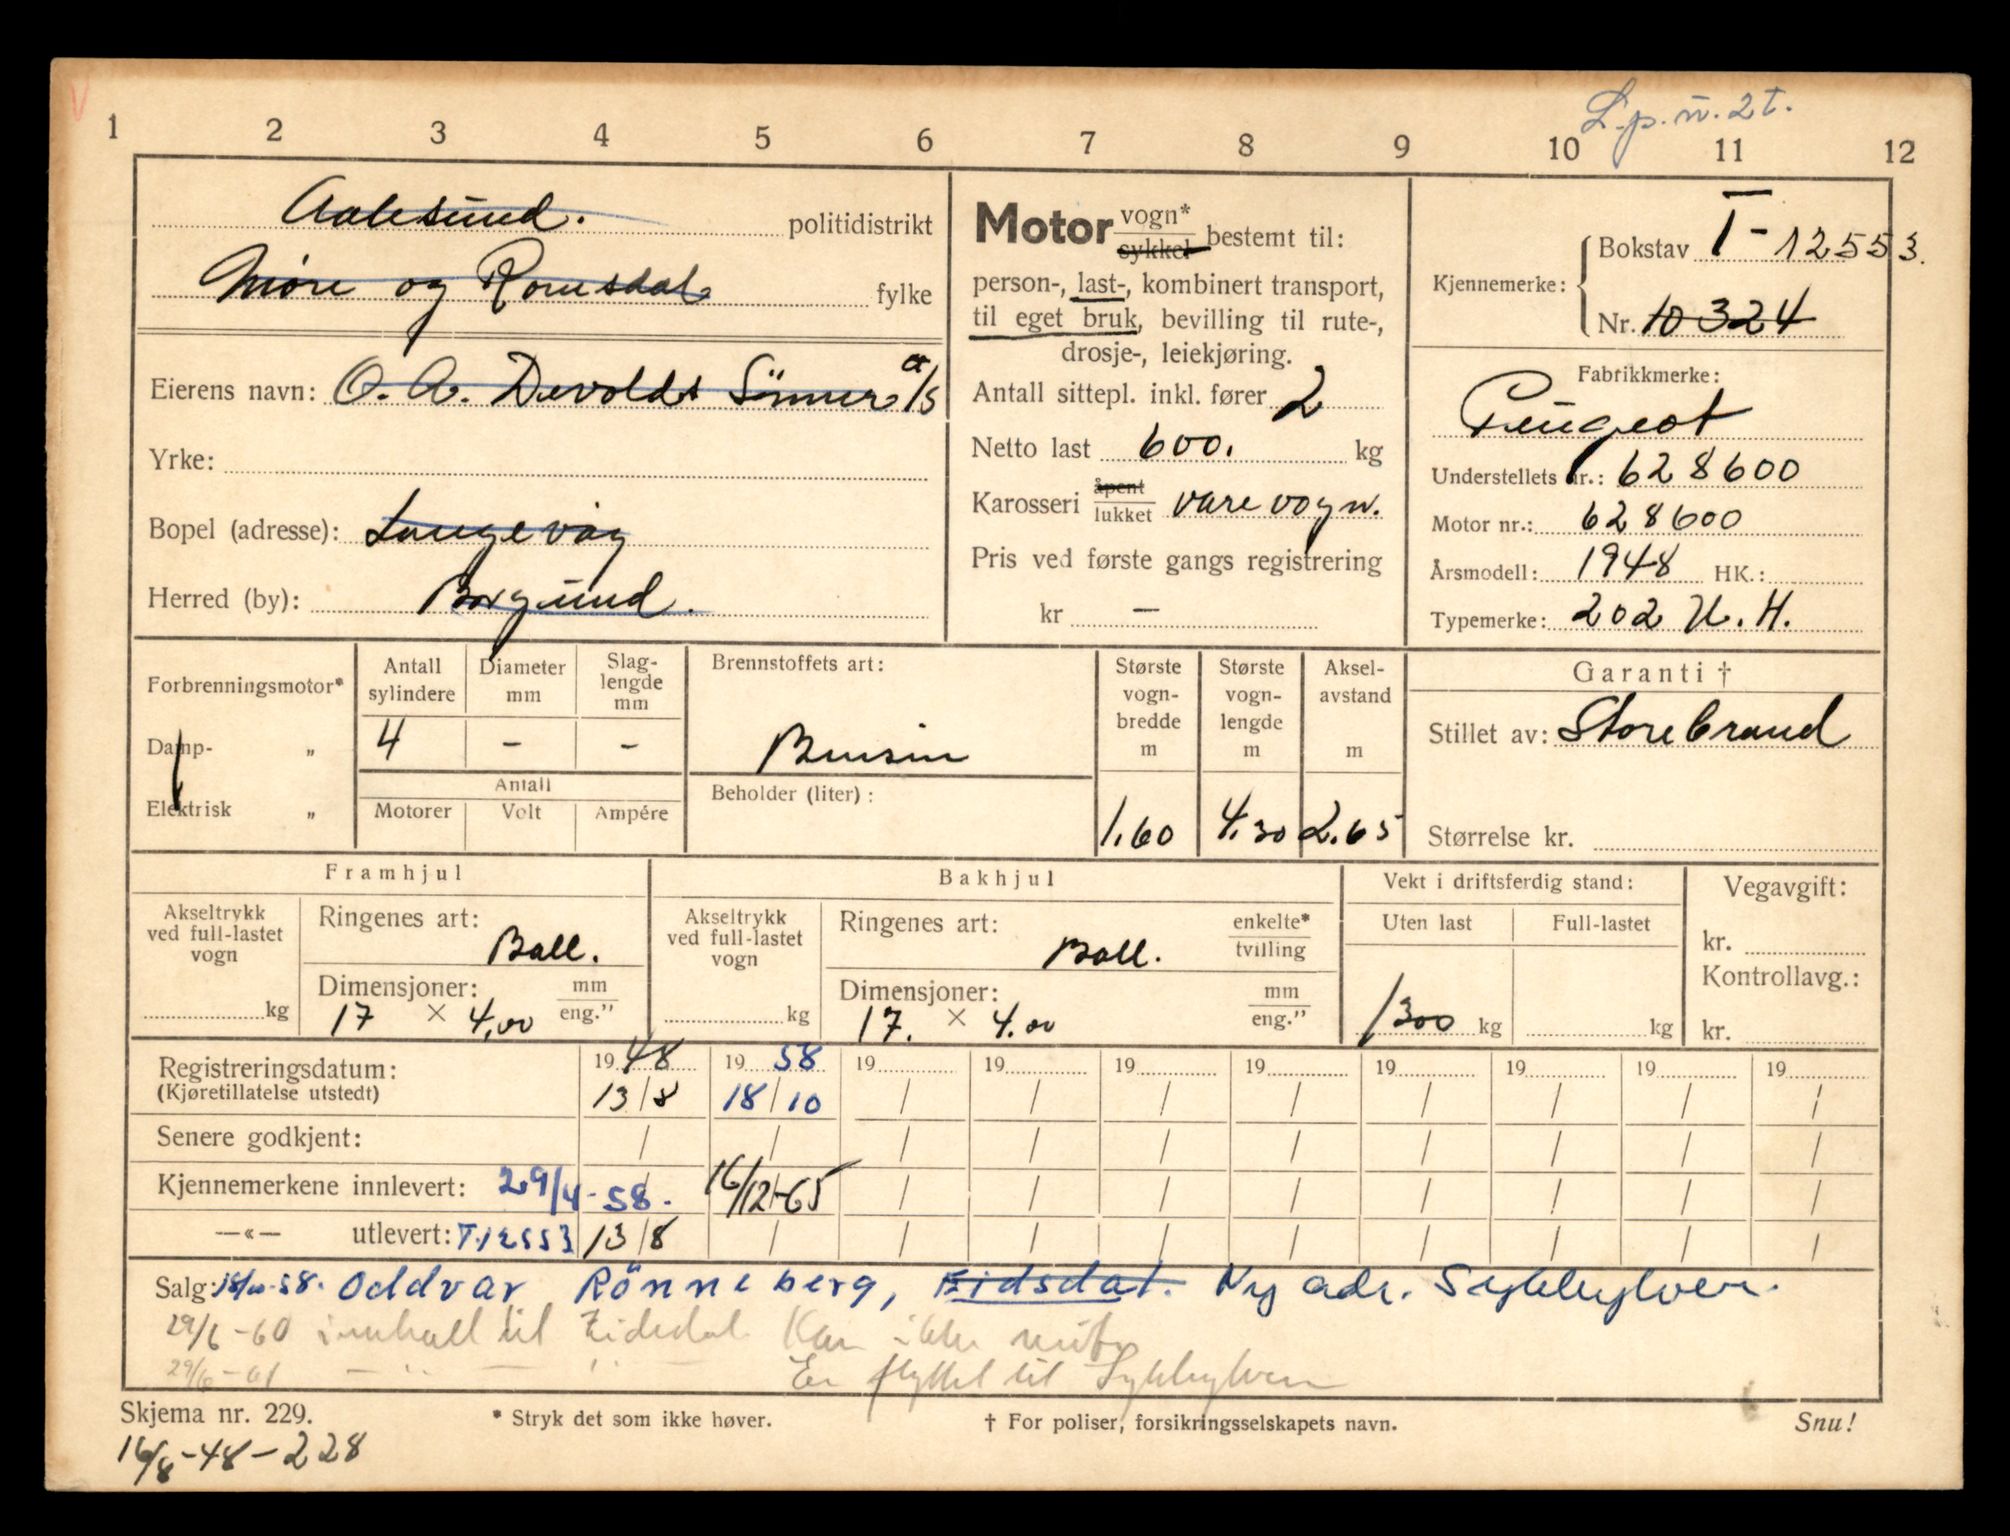 L.p.n. 2t.
1 2 3 4 5 6 7 8 9 10 11 12
Aalesund. politidistrikt
Møre og Romsdal fylke
Eierens navn: O. A. Devolds Sönner A/S
Yrke:
Bopel (adresse): Langevåg
Herred (by): Borgund.
Motor vogn* sykkel bestemt til:
person-, last-, kombinert transport,
til eget bruk, bevilling til rute-,
drosje-, leiekjøring.
Antall sittepl. inkl. fører 2
Netto last 600. kg
Karosseri åpent lukket varevogn.
Pris ved første gangs registrering
kr —
Kjennemerke: Bokstav T - 12553.
Nr. 10324
Fabrikkmerke:
Peugeot
Understellets nr.: 628600
Motor nr.: 628600
Årsmodell: 1948 HK.:
Typemerke: 202 U.H.
Forbrenningsmotor*
Damp- „
Elektrisk „
Antall sylindere
4
Diameter mm
–
Slag- lengde mm
–
Antall
Motorer Volt Ampére
Brennstoffets art:
Bensin
Beholder (liter):
Største vogn- bredde m
1.60
Største vogn- lengde m
4.30
Aksel- avstand m
2.65
Garanti †
Stillet av: Storebrand
Størrelse kr.
Framhjul
Akseltrykk ved full-lastet vogn
kg
Ringenes art: Ball.
Dimensjoner: mm eng."
17 × 4,00
Bakhjul
Akseltrykk ved full-lastet vogn
kg
Ringenes art: enkelte* tvilling
Ball.
Dimensjoner: mm eng."
17. × 4.00
Vekt i driftsferdig stand:
Uten last Full-lastet
1300 kg kg
Vegavgift:
kr.
Kontrollavg.:
kr.
Registreringsdatum: 1948 1958 19 19 19 19 19 19 19 19
(Kjøretillatelse utstedt) 13/8 18/10 / / / / / / / /
Senere godkjent: / / / / / / / / / /
Kjennemerkene innlevert: 29/4-58. 16/12-65 / / / / / / / /
—«— utlevert: T.12553 13/8 / / / / / / / / /
Salg: 18/10-58. Oddvar Rönneberg, Eidsdal. Ny adr. Sykkylven.
29/6-60 innkall til Eidsdal. Kan ikke
29/6-61 — " — " — Er flyttet til Sykkylven
Skjema nr. 229. * Stryk det som ikke høver. † For poliser, forsikringsselskapets navn. Snu!
16/8-48-228